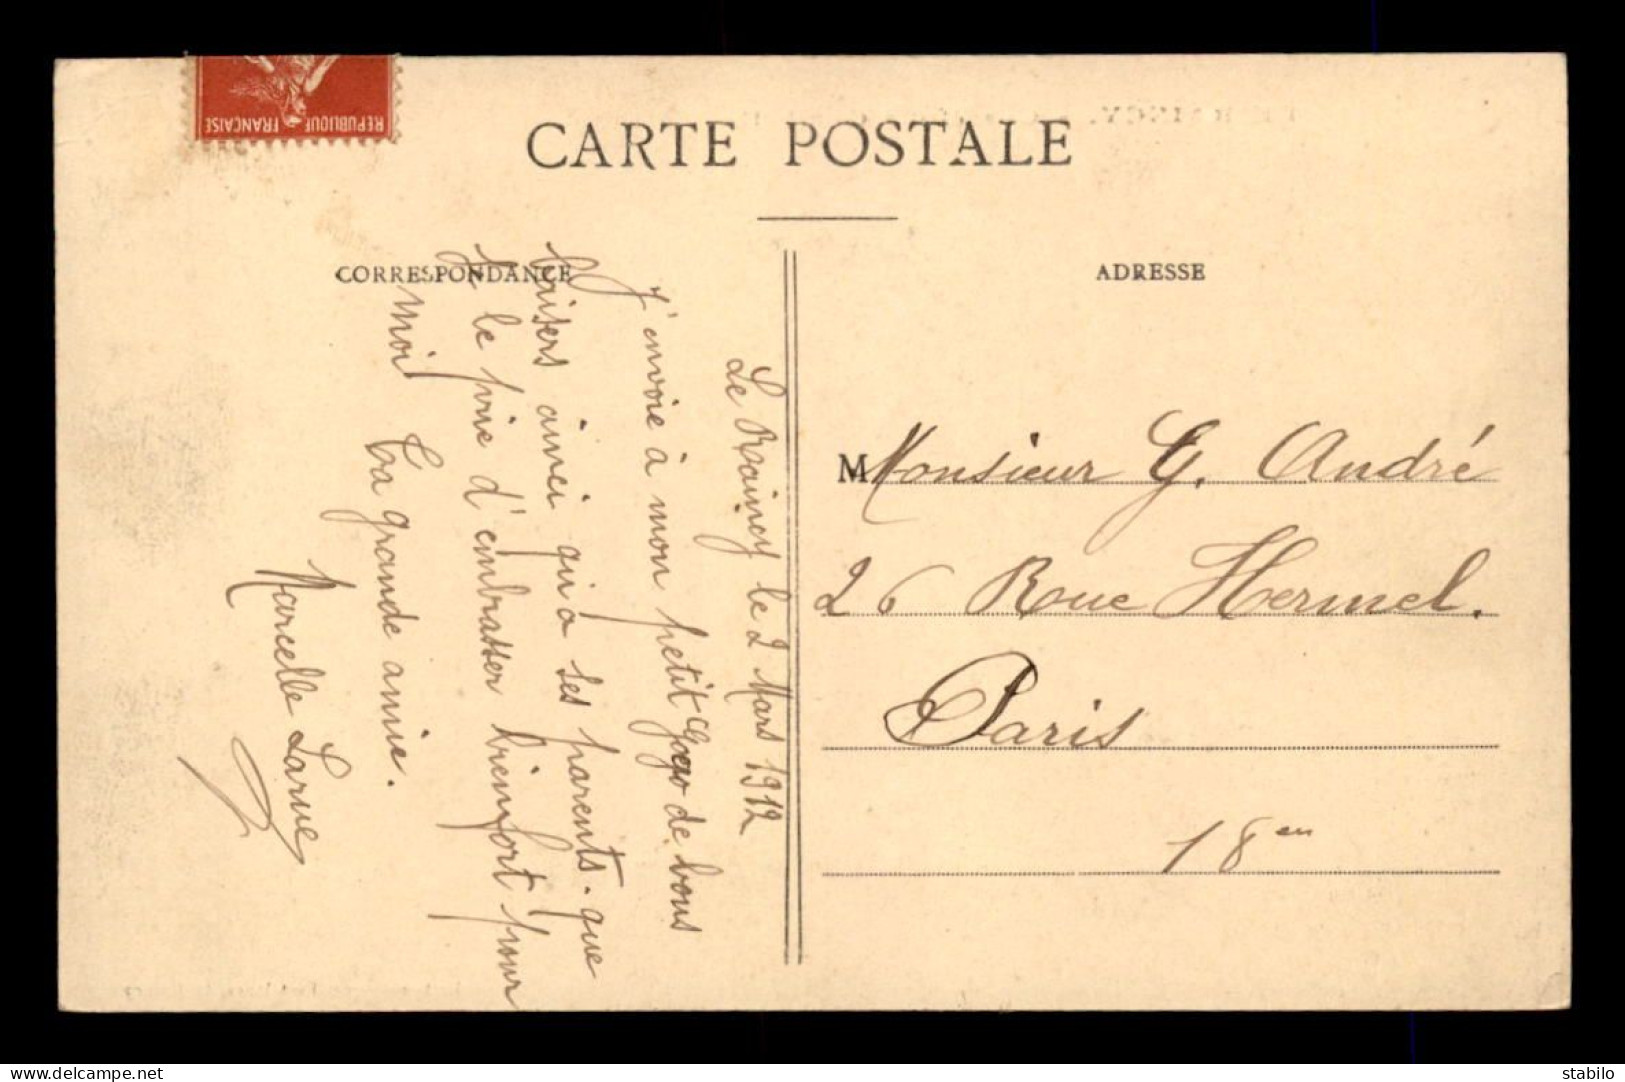 REPUBLIQUE FRANÇAISE
CARTE POSTALE
CORRESPONDANCE
ADRESSE
Le Raincy le 2 Mars 1912
J'envoie à mon petit Gogo de bons
baisers ainci qu'a ses parents. que
je le prie d'embrasser bien fort pour
moi
Ta grande amie.
Marcelle Larue
M Monsieur G. André
26 Rue Hermel.
Paris
18 em
delcampe.net
stabilo